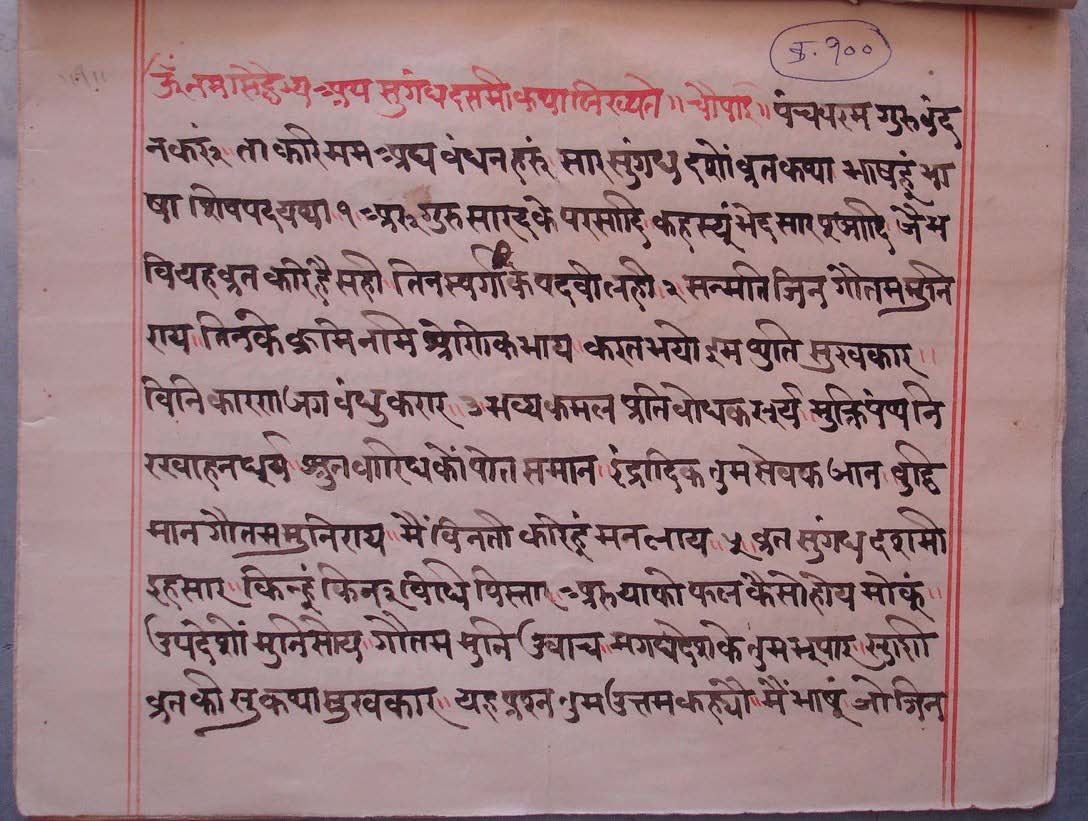 क्र. १००
॥१॥
ॐ नमः सिद्धेभ्यः अथ सुगंधदसमीकथा लिख्यते ॥ चौपाई ॥ पंचपरम गुरु वंद
न करूं ता करि मम अघ बंधन हरूं सार सुंगध दशों व्रत कथा भाषहूं भा
षा शिवपद यथा १ अरु गुरु सारद के परसादि कहस्यूं भेद सार पूजादि जे भ
वि यह व्रत करिहै सही तिन स्वर्गादिक पदवी लही २ सन्मति जिन गौतम मुनि
राय ॥ तिनके क्रमि नमि श्रेणिक भाय करत भयो इम थुति सुखकार ॥
विनि कारण जग बंधु करार ३ भव्य कमल प्रतिबोधक सूर्य मुक्ति पंथ नि
रखाहन धूर्य श्रुत वारिध कौं पोत समान इंद्रादिक तुम सेवक जान बुद्धि
मान गौतम मुनिराय मैं विनती करिहूं मन लाय ॥ ५ व्रत सुंगध दशमी
इह सार ॥ किन्हूं किन २ विधि विस्तार अरु याको फल कैसो होय मोकूं ॥
उपदेशों मुनि सोय ॥ गौतम मुनि उवाच ॥ मगधदेश के तुम भूपार ॥ सुणि
व्रत की सुकथा सुखकार ॥ यह प्रश्न तुम उत्तम कह्यौ ॥ मैं भाषूं जो जिन